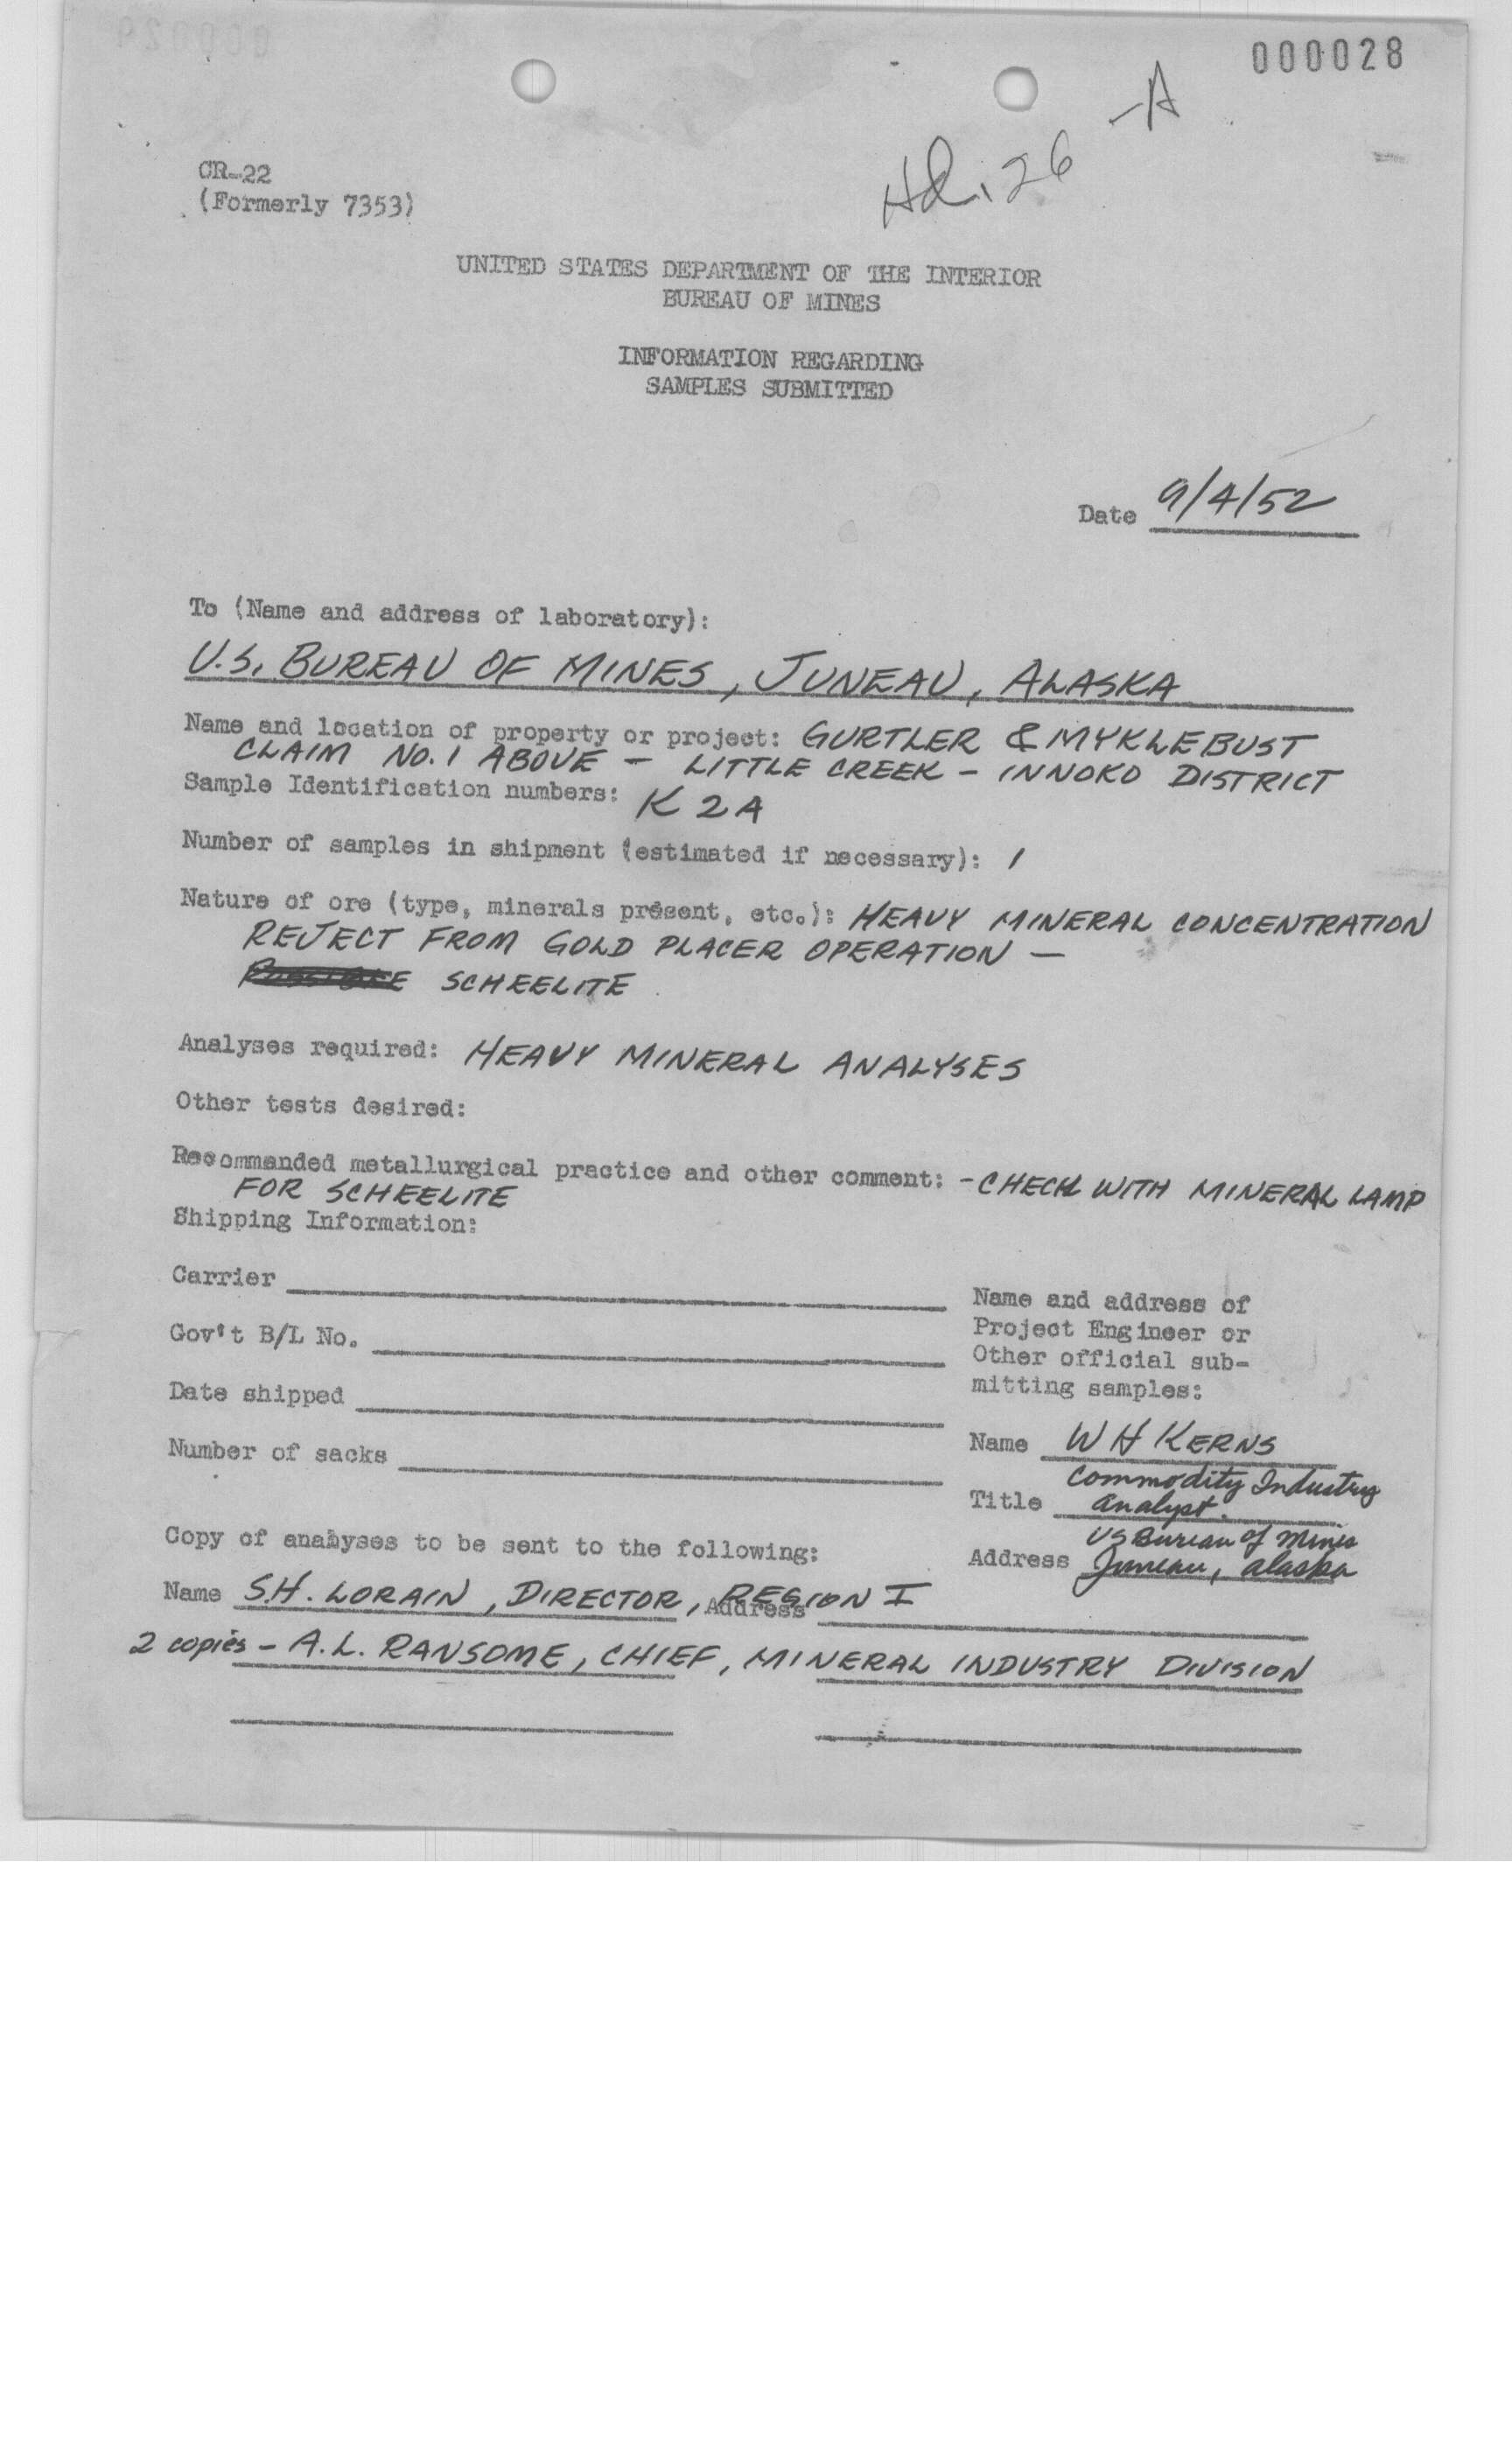 000028
-A
26
CR-22
(Formerly 7353)
UNITED STATES DEPARTMENT OF THE INTERIOR
BUREAU OF MINES
INFORMATION REGARDING
SAMPLES SUBMITTED
Date 9/4/52
To (Name and address of laboratory):
U.S. BUREAU OF MINES, JUNEAU, ALASKA
Name and location of property or project: GURTLER & MYKLEBUST
CLAIM NO. 1 ABOVE - LITTLE CREEK - INNOKO DISTRICT
Sample Identification numbers: K 2 A
Number of samples in shipment (estimated if necessary): 1
Nature of ore (type, minerals present, etc.): HEAVY MINERAL CONCENTRATION
REJECT FROM GOLD PLACER OPERATION -
SCHEELITE
Analyses required: HEAVY MINERAL ANALYSES
Other tests desired:
Recommended metallurgical practice and other comment: - CHECK WITH MINERAL LAMP
FOR SCHEELITE
Shipping Information:
Carrier
Gov't B/L No.
Date shipped
Number of sacks
Name and address of
Project Engineer or
Other official sub-
mitting samples:
Name W H KERNS
Title Commodity Industry
Analyst.
US Bureau of Mines
Address Juneau, Alaska
Copy of anabyses to be sent to the following:
Name S.H. LORAIN, DIRECTOR, REGION I Address
2 copies - A.L. RANSOME, CHIEF, MINERAL INDUSTRY DIVISION